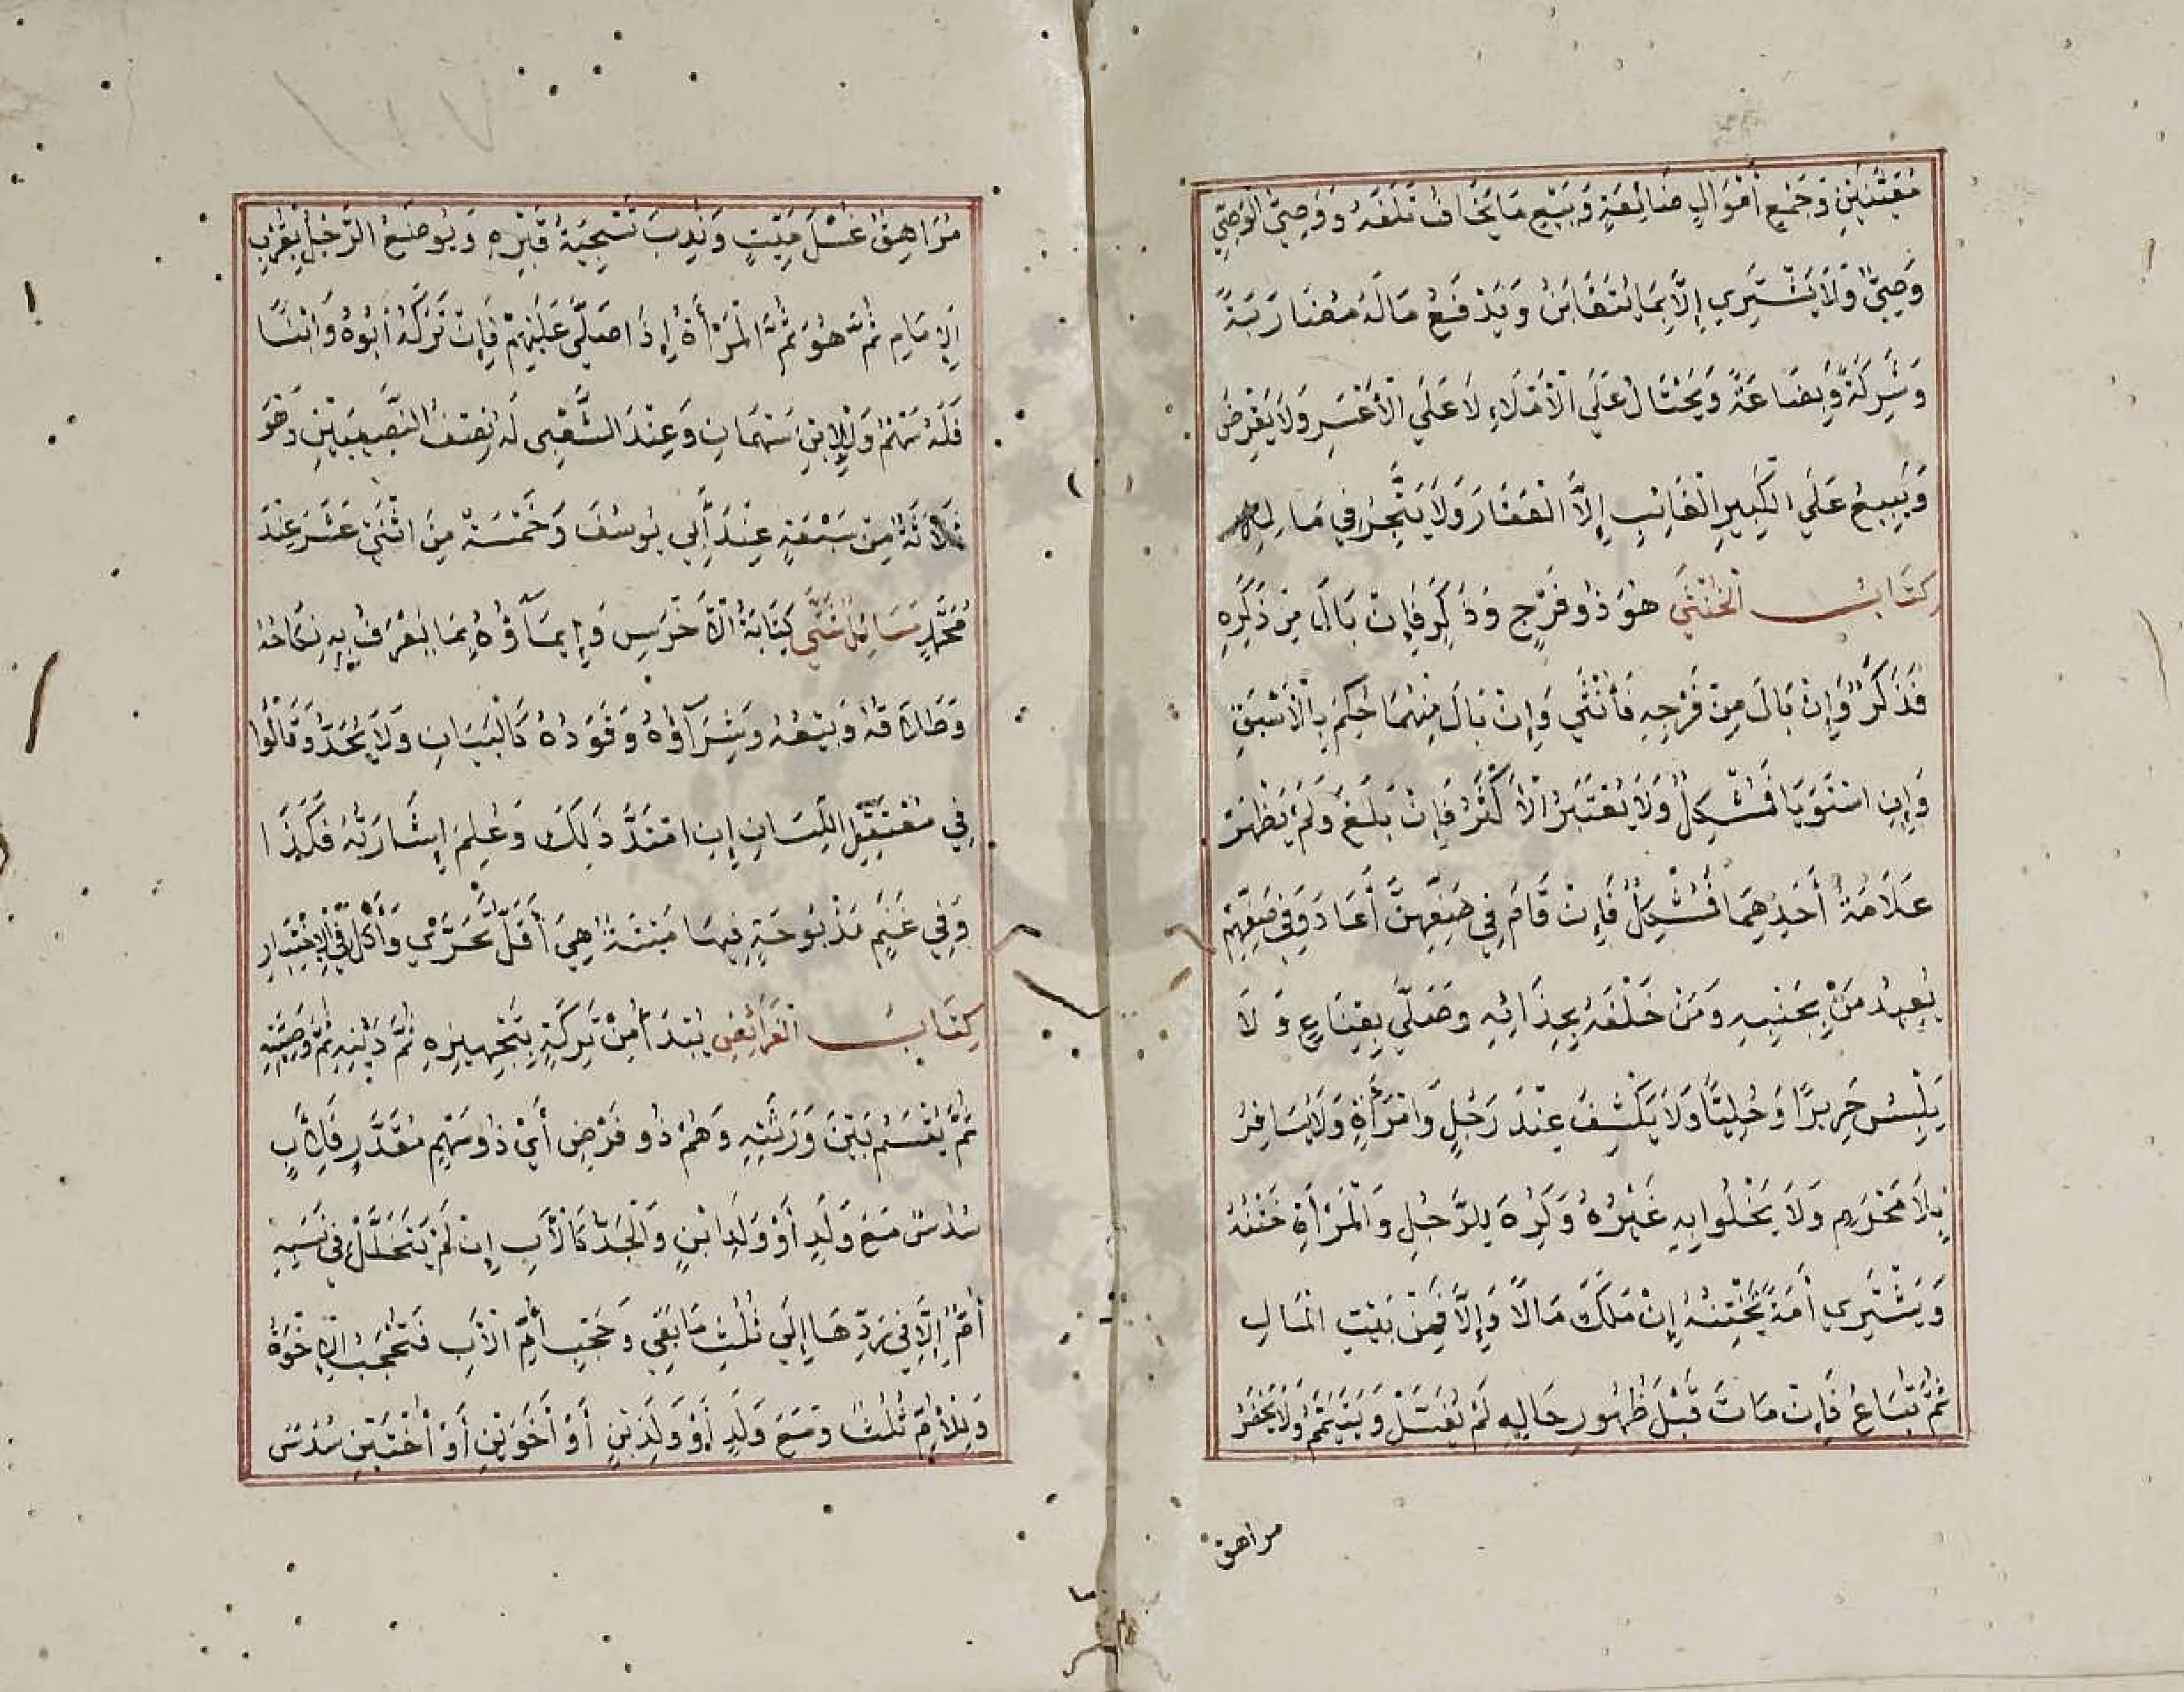 مُعَيَّنَيْنِ وَجَمْعِ أَمْوَالٍ ضَائِعَةٍ وَبَيْعِ مَا يُخَافُ تَلَفُهُ وَوَصِيُّ الْوَصِيِّ
وَصِيٌّ وَلَا يَشْتَرِي إِلَّا بِمَا يُتَغَابَنُ وَيَدْفَعُ مَالَهُ مُضَارَبَةً
وَشِرْكَةً وَبِضَاعَةً وَيَحْتَالُ عَلَي الْأَمْلَاءِ لَا عَلَي الْأَعْسَرِ وَلَا يَقْرِضُ
وَيَبِيعُ عَلَي الْكَبِيرِ الْغَائِبِ إِلَّا الْعَقَارَ وَلَا يَتَّجِرُ فِي مَالِهِ
كِتَابُ الْخُنْثَي هُوَ ذُو فَرْجٍ وَذَكَرٍ فَإِنْ بَالَ مِنْ ذَكَرِهِ
فَذَكَرٌ وَإِنْ بَالَ مِنْ فَرْجِهِ فَأُنْثَي وَإِنْ بَالَ مِنْهُمَا حُكِمَ بِالْأَسْبَقِ
وَإِنِ اسْتَوَيَا فَمُشْكِلٌ وَلَا يُعْتَبَرُ الْأَكْثَرُ فَإِنْ بَلَغَ وَلَمْ يَظْهَرْ
عَلَامَةُ أَحَدِهِمَا فَمُشْكِلٌ فَإِنْ قَامَ فِي صَفِّهِنَّ أَعَادَ وَفِي صَفِّهِمْ
يُعِيدُ مَنْ بِجَنْبِهِ وَمَنْ خَلْفَهُ بِحِذَائِهِ وَصَلَّي بِقِنَاعٍ وَلَا
يَلْبِسُ حَرِيرًا وَحُلِيًّا وَلَا يَكْشِفُ عِنْدَ رَجُلٍ وَامْرَأَةٍ وَلَا يُسَافِرُ
بِلَا مَحْرَمٍ وَلَا يَخْلُوا بِهِ غَيْرُهُ وَكُرِهَ لِلرَّجُلِ وَالْمَرْأَةِ خَتْنُهُ
وَيَشْتَرِي أَمَةً تَخْتِنُهُ إِنْ مَلَكَ مَالًا وَإِلَّا فَمِنْ بَيْتِ الْمَالِ
ثُمَّ تُبَاعُ فَإِنْ مَاتَ قَبْلَ ظُهُورِ حَالِهِ لَمْ يُغْسَلْ وَيُيَمَّمُ وَلَا يَحْضُرُ
مراهق
مُرَاهِقٌ غُسْلَ مَيِّتٍ وَنُدِبَ تَسْجِيَةُ قَبْرِهِ وَيُوضَعُ الرَّجُلُ بِقُرْبِ
الْإِمَامِ ثُمَّ هُوَ ثُمَّ الْمَرْأَةُ إِذَا صَلَّي عَلَيْهِمْ فَإِنْ تَرَكَهُ أَبُوهُ وَابْنًا
فَلَهُ سَهْمٌ وَلِلِابْنِ سَهْمَانِ وَعِنْدَ الشَّعْبِي لَهُ نِصْفُ النَّصِيبَيْنِ وَهُوَ
ثَلَاثَةٌ مِنْ سَبْعَةٍ عِنْدَ أَبِي يُوسُفَ وَخَمْسَةٌ مِنِ اثْنَيْ عَشَرَ عِنْدَ
مُحَمَّدٍ مَسَائِلُ شَتَّي كِتَابَةُ الْأَخْرَسِ وَإِيمَاؤُهُ بِمَا يُعْرَفُ بِهِ نِكَاحُهُ
وَطَلَاقُهُ وَبَيْعُهُ وَشِرَآؤُهُ وَقَوَدُهُ كَالْبَيَانِ وَلَا يُحَدُّ وَقَالُوا
فِي مُعْتَقَلِ اللِّسَانِ إِنِ امْتَدَّ ذَلِكَ وَعُلِمَ إِشَارَتُهُ فَكَذَا
وَفِي غَنَمٍ مَذْبُوحَةٍ فِيهَا مَيْتَةٌ هِيَ أَقَلُّ تَحَرَّي وَأَكَلَ فِي الْاِخْتِيَارِ
كِتَابُ الْفَرَائِضِ يُبْتَدَأُ مِنْ تَرِكَةٍ بِتَجْهِيزِهِ ثُمَّ دَيْنِهِ ثُمَّ وَصِيَّتِهِ
ثُمَّ يُقْسَمُ بَيْنَ وَرَثَتِهِ وَهُمْ ذُو فَرْضٍ أَيْ ذُو سَهْمٍ مُقَدَّرٍ فَلِأَبٍ
سُدُسٌ مَعَ وَلَدٍ أَوْ وَلَدِ ابْنٍ وَالْجَدُّ كَالْأَبِ إِنْ لَمْ يَتَخَلَّلْ فِي نَسَبِهِ
أُمٌّ إِلَّا فِي رَدِّهَا إِلَي ثُلُثِ مَا بَقِي وَحَجْبِ أُمِّ الْأَبِ فَتَحْجُبُ الْإِخْوَةُ
وَلِلْأُمِّ ثُلُثٌ وَمَعَ وَلَدٍ أَوْ وَلَدِ بْنٍ أَوْ أَخَوَيْنِ أَوْ أُخْتَيْنِ سُدُسٌ